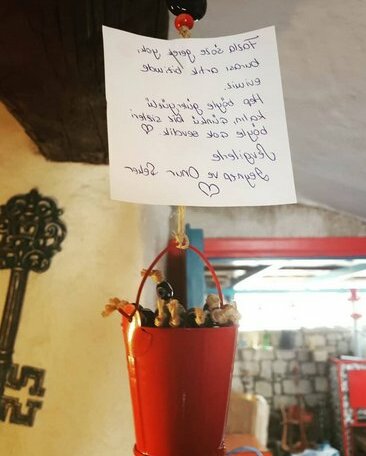 Fazla söze gerek yok,
burası artık bizimde
evimiz.
Hep böyle güleryüzlü
kalın, çünkü biz sizleri
böyle çok sevdik ♡
Sevgilerle
Zeynep ve Onur Şeker
♡